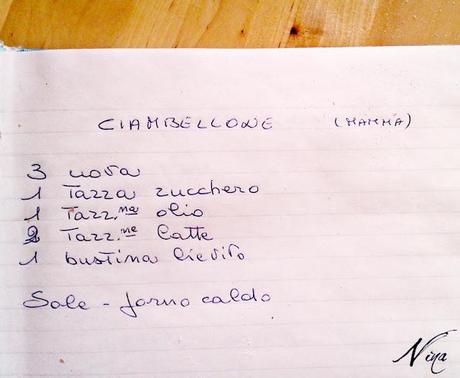 CIAMBELLONE (MAMMA)
3 uova
1 Tazza zucchero
1 Tazz.na olio
2 Tazz.ne latte
1 bustina lievito
Sale - forno caldo
Nina